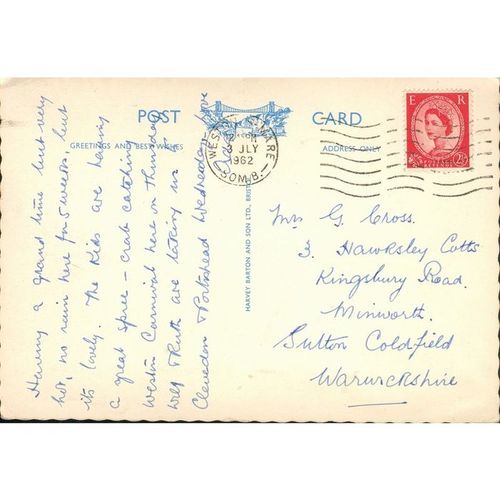 POST CARD
GREETINGS AND BEST WISHES
ADDRESS ONLY
HARVEY BARTON AND SON LTD., BRISTOL
E R
POSTAGE
2½
WESTON-S-MARE
3 JLY
1962
SOM.B.
Having a grand time but very
hot, no rain here for 5 weeks, but
its lovely. The Kids are having
a great spree - crab catching
Weston Carnival here on Thursday
Wilf & Ruth are taking us
Clevedon & Portishead Wednesday love
Mrs G. Cross.
2 Hawksley Cotts
Kingsbury Road.
Minworth.
Sutton Coldfield
Warwickshire